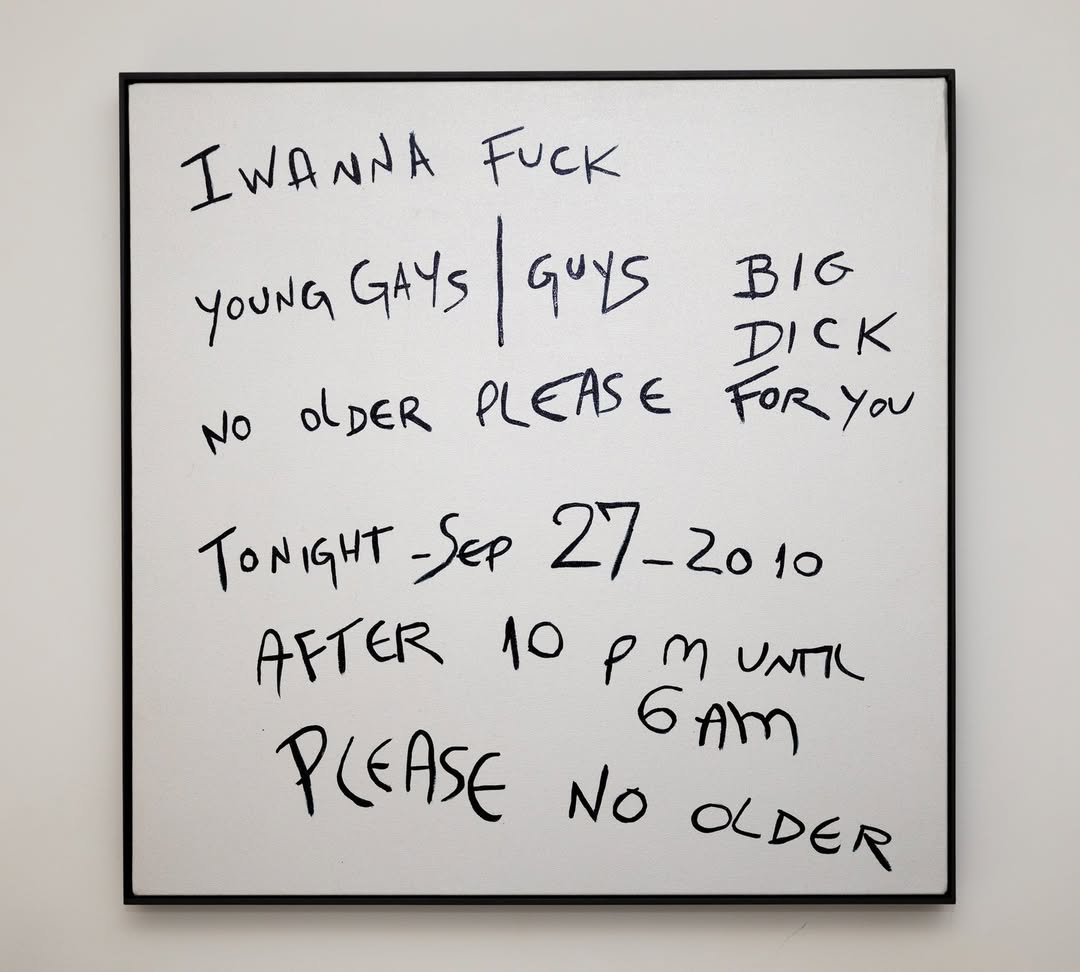 I WANNA FUCK
YOUNG GAYS | GUYS
NO OLDER PLEASE
BIG
DICK
FOR YOU
TONIGHT - SEP 27 - 2010
AFTER 10 PM UNTIL
6 AM
PLEASE NO OLDER